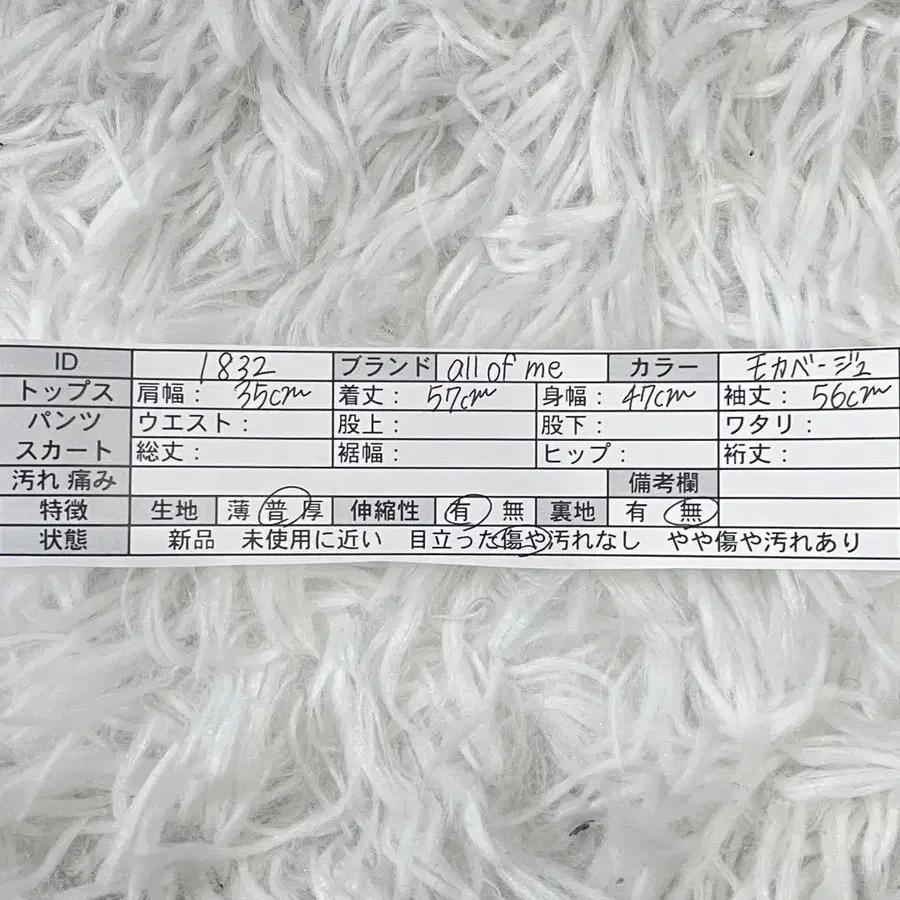 ID 1832 ブランド all of me カラー モカベージュ
トップス 肩幅： 35cm 着丈： 57cm 身幅： 47cm 袖丈： 56cm
パンツ ウエスト： 股上： 股下： ワタリ：
スカート 総丈： 裾幅： ヒップ： 裄丈：
汚れ 痛み 備考欄
特徴 生地 薄 普 厚 伸縮性 有 無 裏地 有 無
状態 新品 未使用に近い 目立った傷や汚れなし やや傷や汚れあり